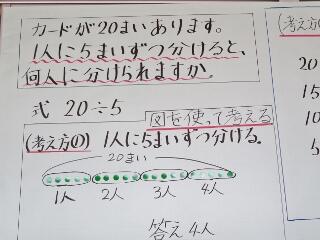 カードが20まいあります。
1人に5まいずつ分けると、
何人に分けられますか。
式 20÷5
図を使って考える
(考え方①) 1人に5まいずつ分ける。
20まい
1人 2人 3人 4人
答え 4人
20
15
10